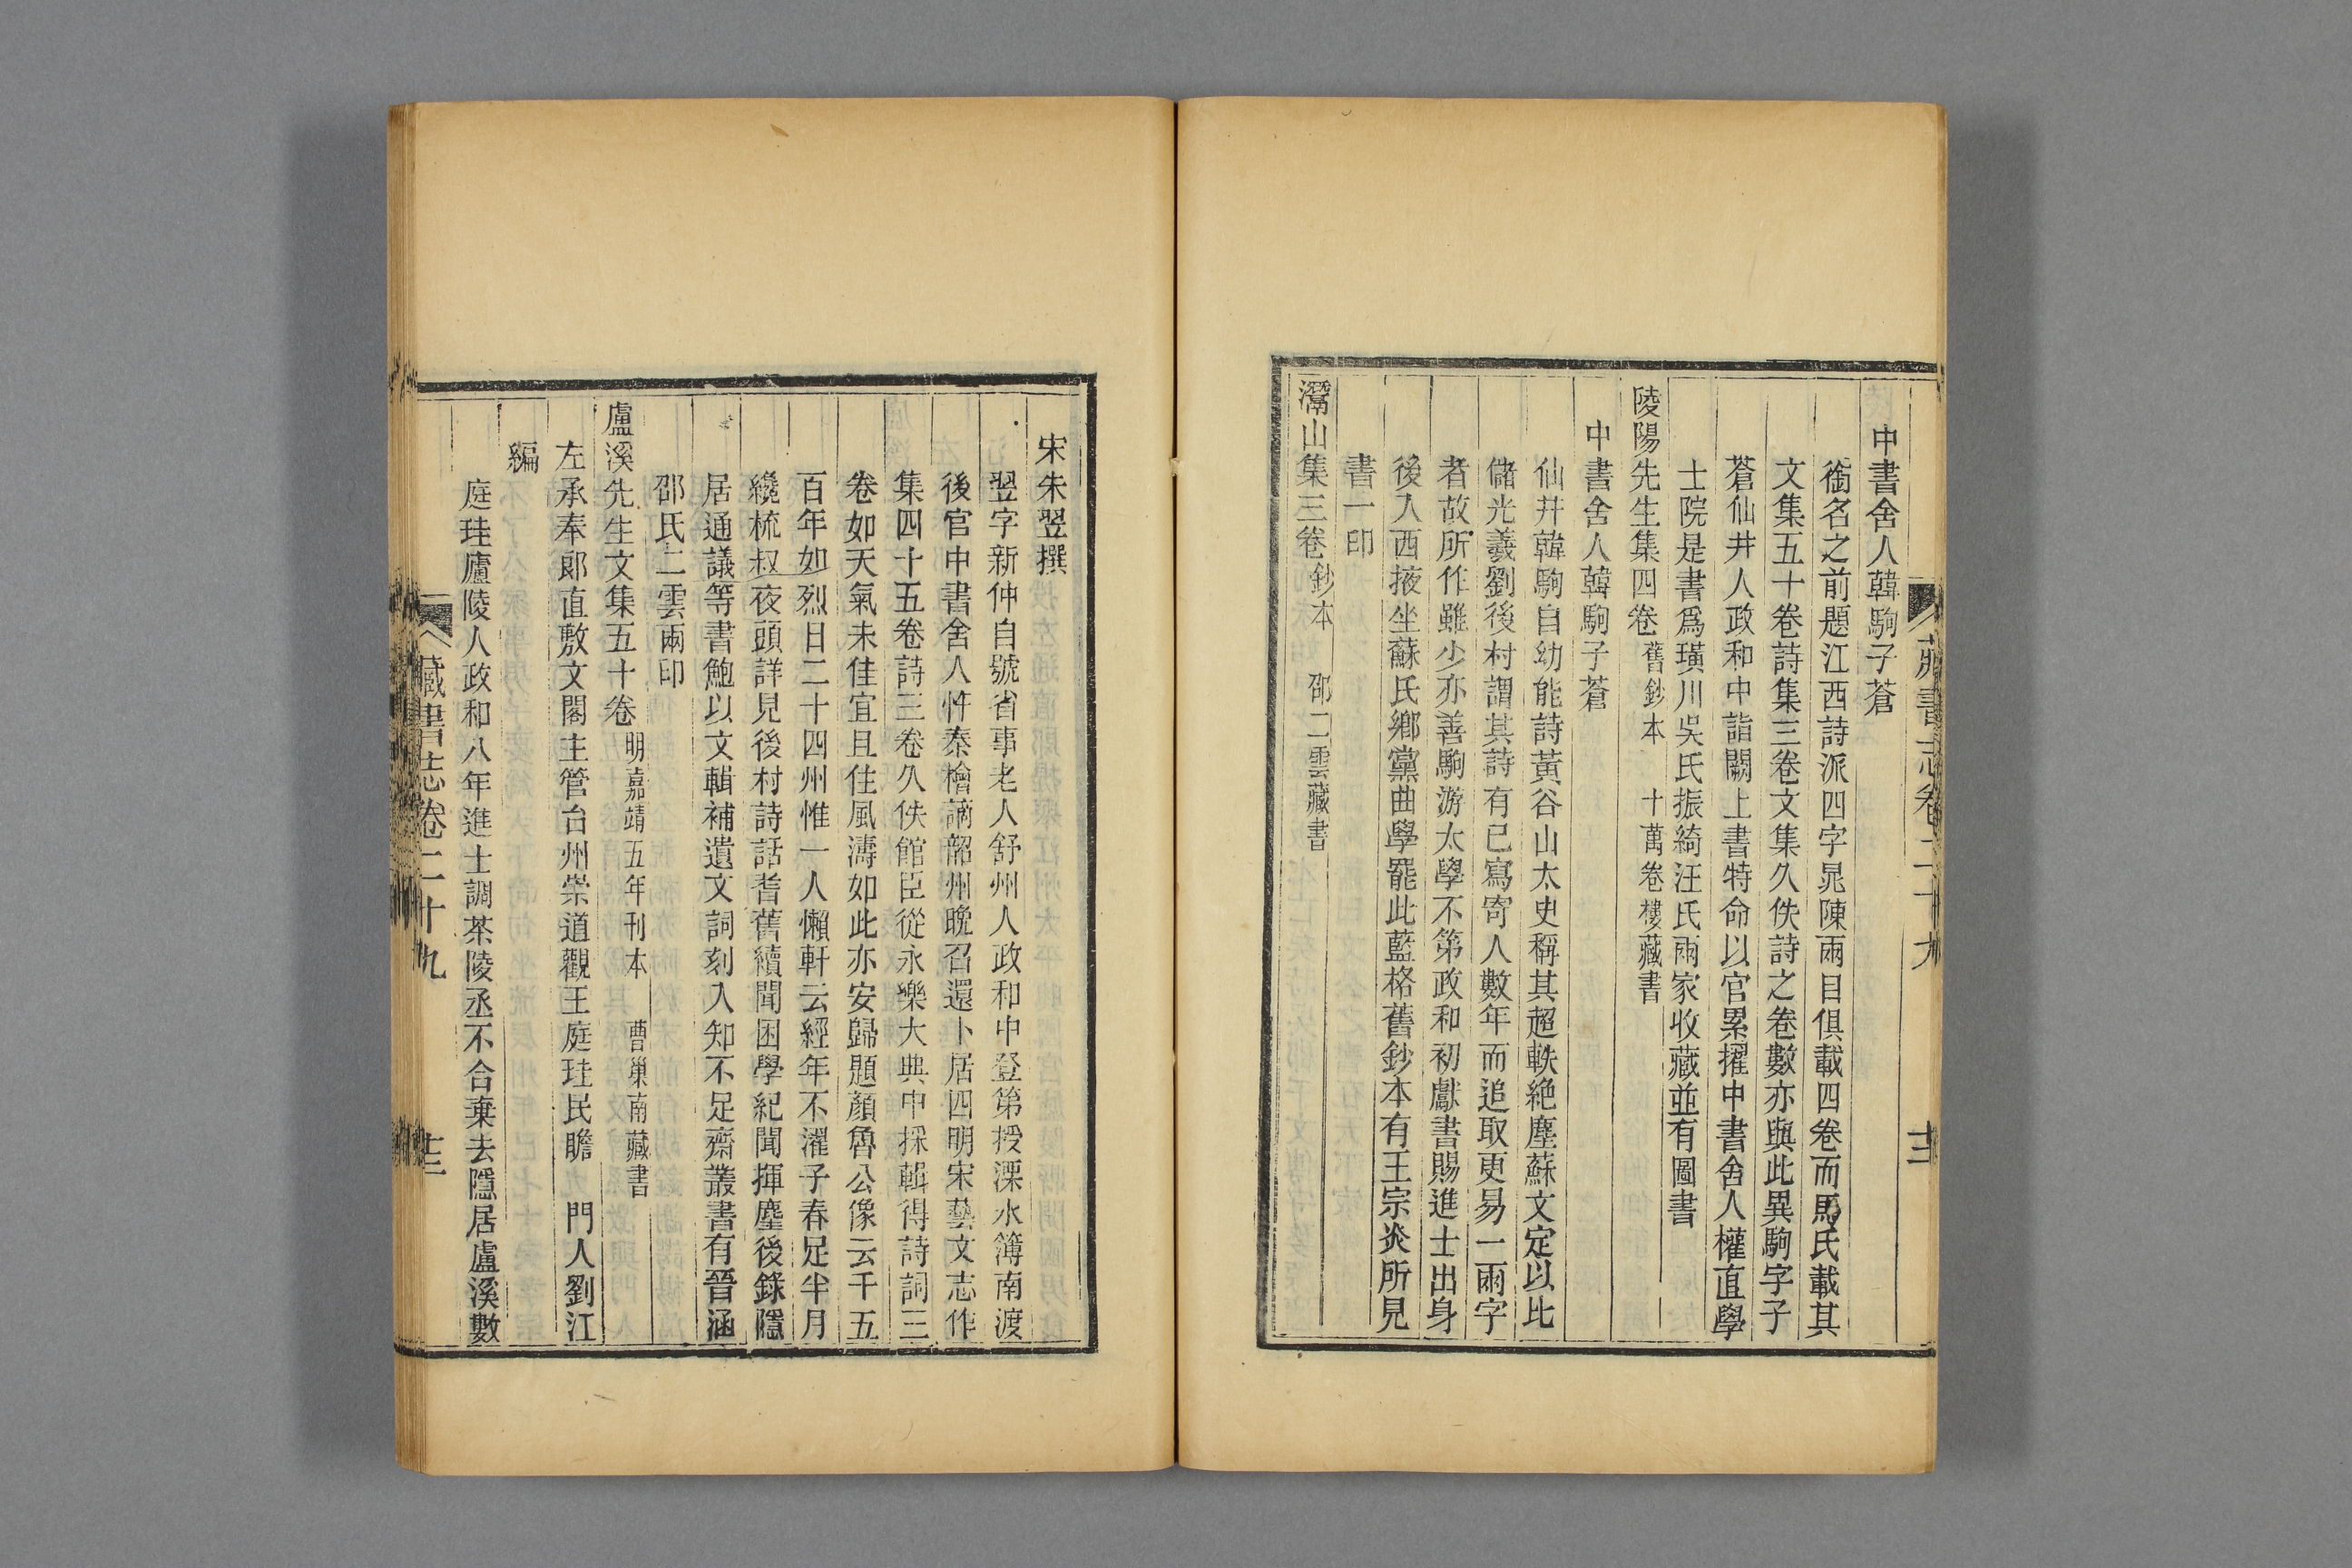 藏書志卷二十九
十二
中書舍人韓駒子蒼
銜名之前題江西詩派四字晁陳兩目俱載四卷而馬氏載其
文集五十卷詩集三卷文集久佚詩之卷數亦與此異駒字子
蒼仙井人政和中詣闕上書特命以官累擢中書舍人權直學
士院是書爲璜川吳氏振綺汪氏兩家收藏並有圖書
陵陽先生集四卷 舊鈔本 十萬卷樓藏書
中書舍人韓駒子蒼
仙井韓駒自幼能詩黃谷山太史稱其超軼絕塵蘇文定以比
儲光羲劉後村謂其詩有已寫寄人數年而追取更易一兩字
者故所作雖少亦善駒游太學不第政和初獻書賜進士出身
後入西掖坐蘇氏鄉黨曲學罷此藍格舊鈔本有王宗炎所見
書一印
灊山集三卷 鈔本 邵二雲藏書
宋朱翌撰
翌字新仲自號省事老人舒州人政和中登第授溧水簿南渡
後官中書舍人忤秦檜謫韶州晚召還卜居四明宋藝文志作
集四十五卷詩三卷久佚館臣從永樂大典中採輯得詩詞三
卷如天氣未佳宜且住風濤如此亦安歸題顏魯公像云千五
百年如烈日二十四州惟一人懶軒云經年不濯子春足半月
纔梳叔夜頭詳見後村詩話耆舊續聞困學紀聞揮麈後錄隱
居通議等書鮑以文輯補遺文詞刻入知不足齋叢書有晉涵
邵氏二雲兩印
盧溪先生文集五十卷 明嘉靖五年刊本 曹巢南藏書
左承奉郎直敷文閣主管台州崇道觀王庭珪民瞻 門人劉江
編
庭珪廬陵人政和八年進士調茶陵丞不合棄去隱居盧溪數
藏書志卷二十九
十三